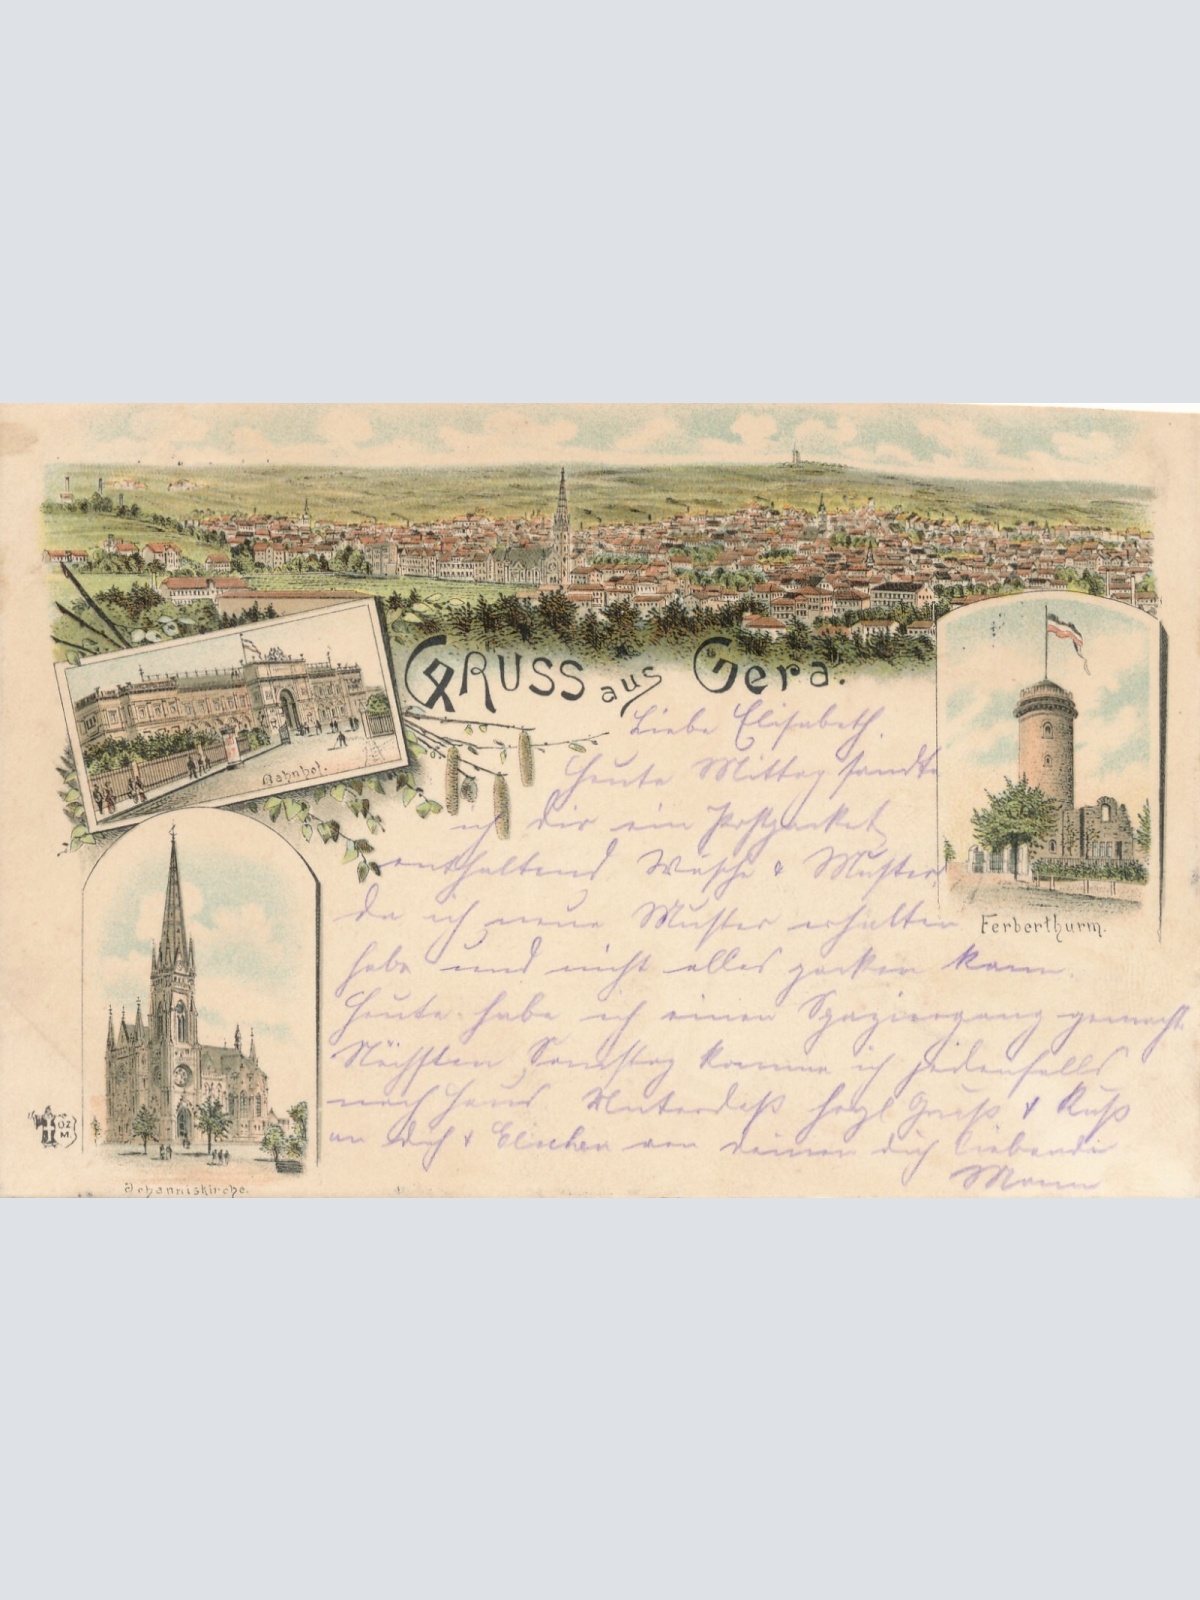 GRUSS aus Gera.
Bahnhof.
Ferberthurm.
Johanniskirche.
Liebe Elisabeth.
Heute Mittag sandte
ich dir ein Postpacket
enthaltend Wäsche & Muster,
da ich neue Muster erhalten
habe und nicht alles packen kann.
Heute habe ich einen Spaziergang gemacht
Nächsten Samstag komme ich jedenfalls
nach Haus Unterdeß herzl Gruß & Kuß
an dich & Elischen von deinem dich liebenden
Mann